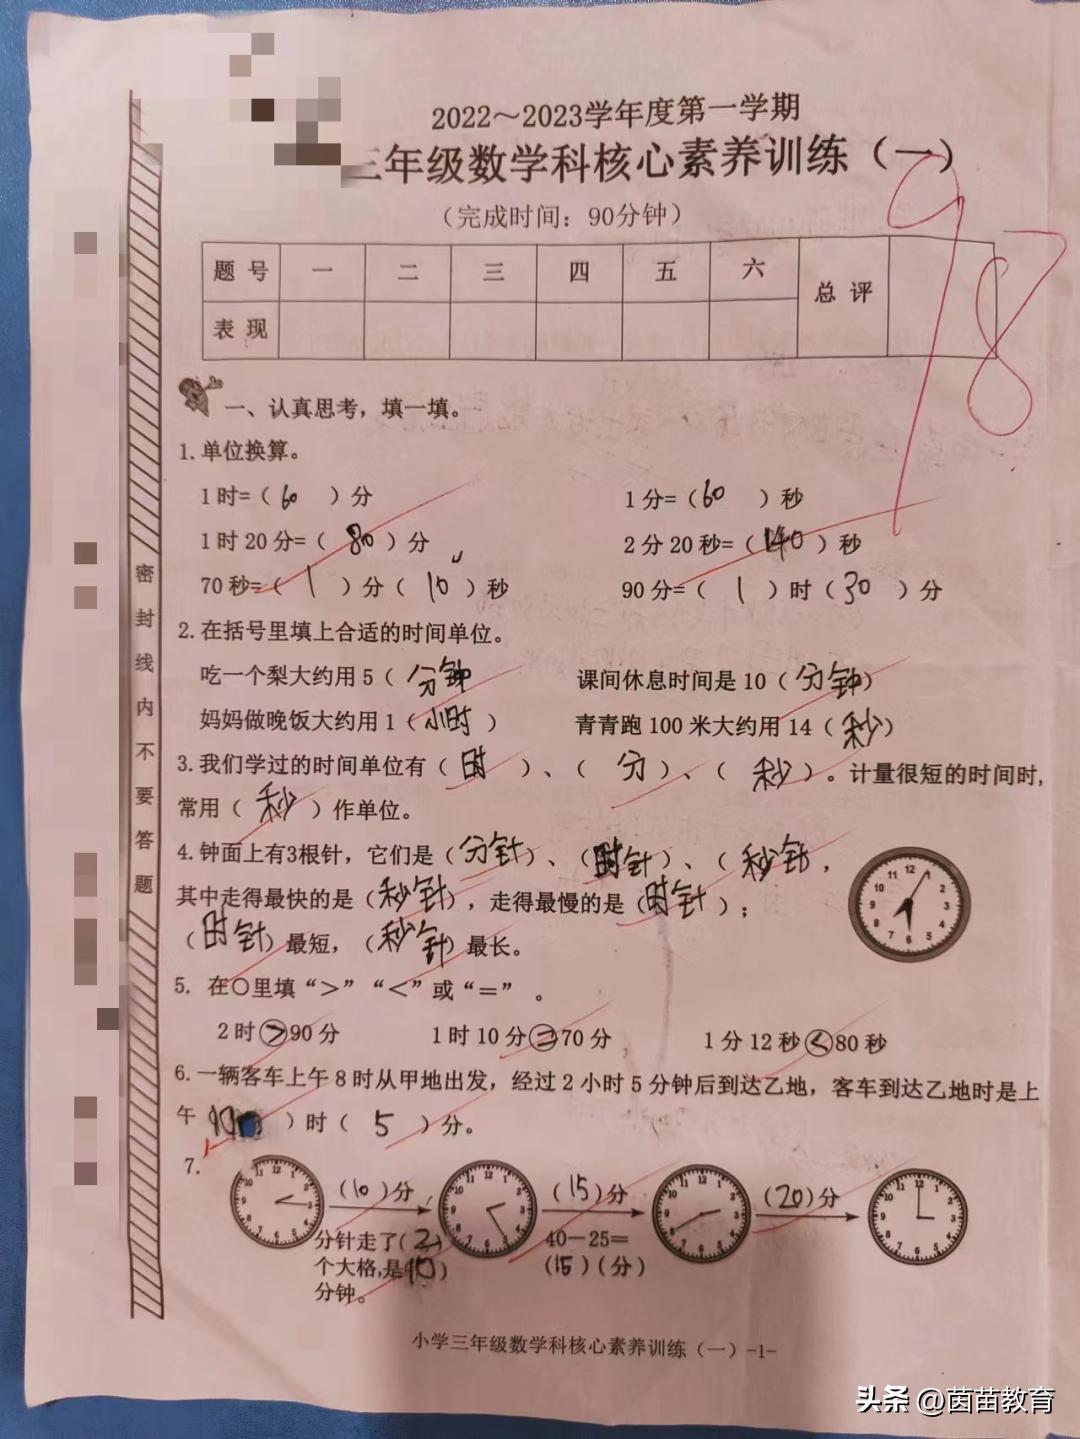 2022～2023学年度第一学期
三年级数学科核心素养训练（一）
（完成时间：90分钟）
98
题号 一 二 三 四 五 六 总评
表现
一、认真思考，填一填。
1.单位换算。
1时=（60）分 1分=（60）秒
1时20分=（80）分 2分20秒=（140）秒
70秒=（1）分（10）秒 90分=（1）时（30）分
2.在括号里填上合适的时间单位。
吃一个梨大约用5（分钟 课间休息时间是10（分钟）
妈妈做晚饭大约用1（小时） 青青跑100米大约用14（秒）
3.我们学过的时间单位有（时）、（分）、（秒）。计量很短的时间时，
常用（秒）作单位。
4.钟面上有3根针，它们是（分针）、（时针）、（秒针，
其中走得最快的是（秒针），走得最慢的是（时针）；
（时针）最短，（秒针）最长。
5. 在○里填“＞”“＜”或“＝”。
2时＞90分 1时10分＝70分 1分12秒＜80秒
6.一辆客车上午8时从甲地出发，经过2小时5分钟后到达乙地，客车到达乙地时是上
午 ）时（5）分。
7.
（10）分 （15）分 （20）分
分针走了（2） 40－25＝
个大格,是（10） （15）（分）
分钟。
小学三年级数学科核心素养训练（一）-1-
密封线内不要答题
12 1 2 3 4 5 6 7 8 9 10 11
头条 @茵苗教育